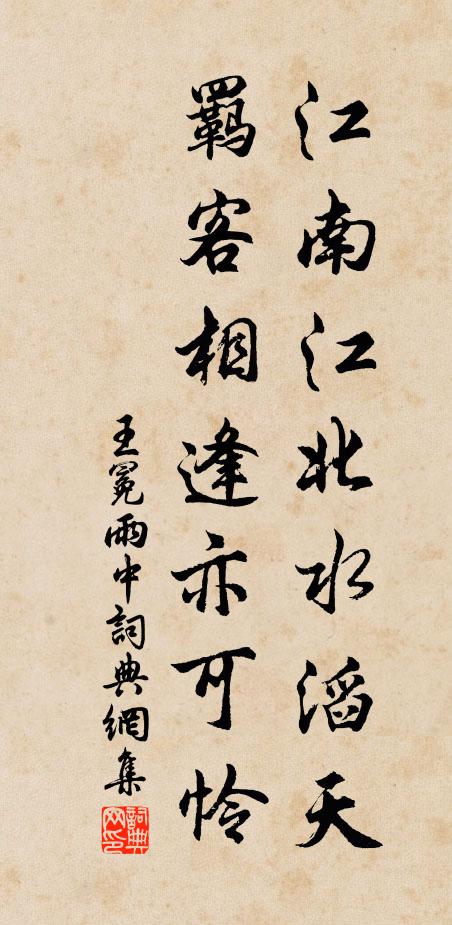 江南江北水滔天
羁客相逢亦可怜
王冕雨中詞典網集
詞典网印